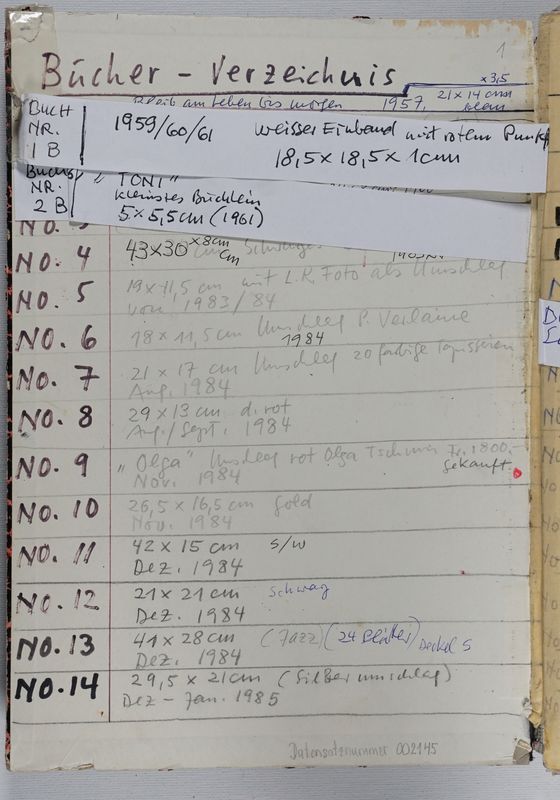 1
Bücher - Verzeichnis
x3,5
Bleib am Leben bis morgen 1957, 21 x 14 cm
BUCH
NR.
1 B
1959/60/61 weisser Einband mit rotem Punkt
18,5 x 18,5 x 1cm
NR.
2 B
"TONI"
kleinstes Büchlein
5 x 5,5cm (1961)
NO. 4 43x30 x 8cm cm
NO. 5 19 x 11,5 cm mit L.R. Foto als Umschlag
vom 1983/84
NO. 6 18 x 11,5 cm Umschlag P. Verlaine
1984
NO. 7 21 x 17 cm Umschlag 20 farbige Tapisserien
Aug. 1984
NO. 8 29 x 13 cm d. rot
Aug./Sept. 1984
NO. 9 "Olga" Umschlag rot Olga Fr. 1800.-
Nov. 1984 gekauft
NO. 10 26,5 x 16,5 cm gold
Nov. 1984
NO. 11 42 x 15 cm s/w
Dez. 1984
NO. 12 21 x 21 cm
Dez. 1984
NO. 13 41 x 28 cm (Jazz) (24 Blätter) Deckel S
Dez. 1984
NO. 14 29,5 x 21 cm (Silberumschlag)
Dez - Jan. 1985
Datensatznummer 002145